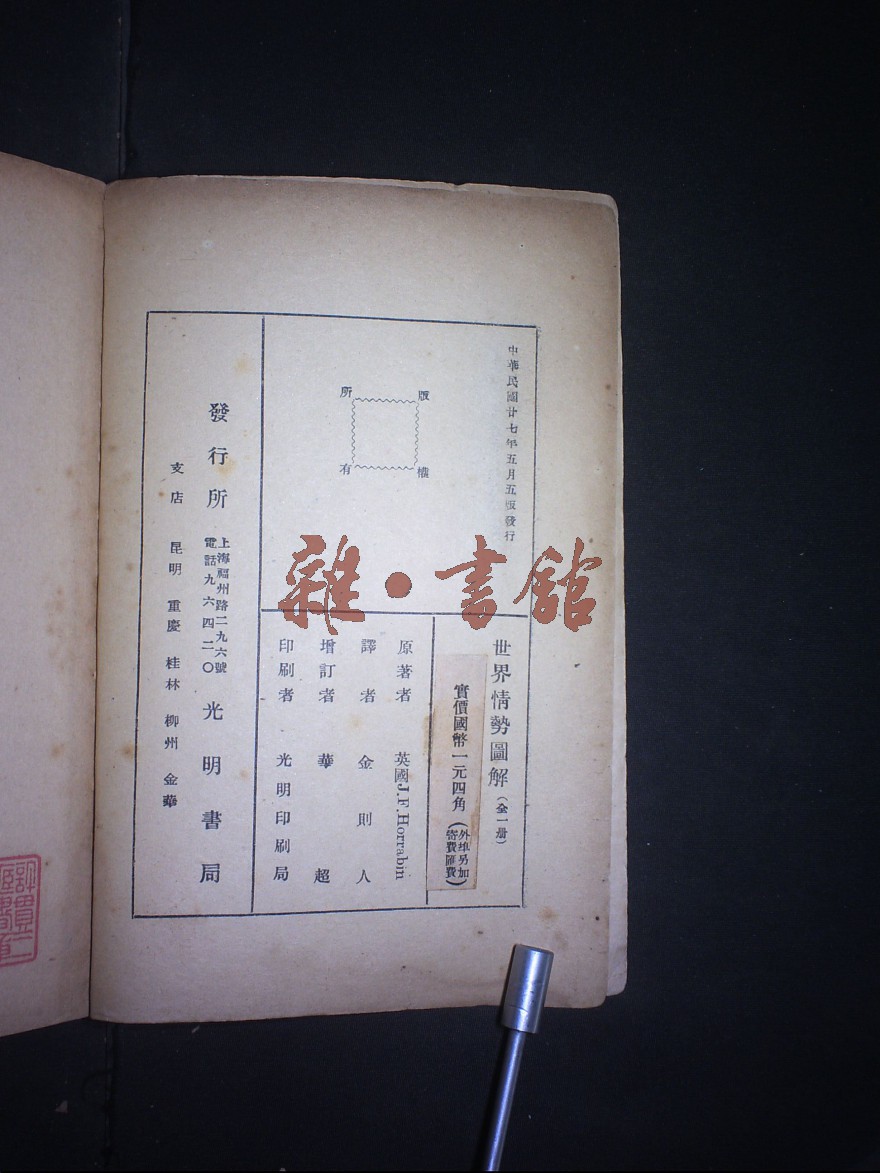 中華民國廿七年五月五版發行
版權所有
世界情勢圖解(全一册)
實價國幣一元四角(外埠另加寄費匯費)
原著者 英國J.F.Horrabin
譯者 金則人
增訂者 華超
印刷者 光明印刷局
發行所 上海福州路二九六號 電話九六四二〇 光明書局
支店 昆明 重慶 桂林 柳州 金華
雜·書館